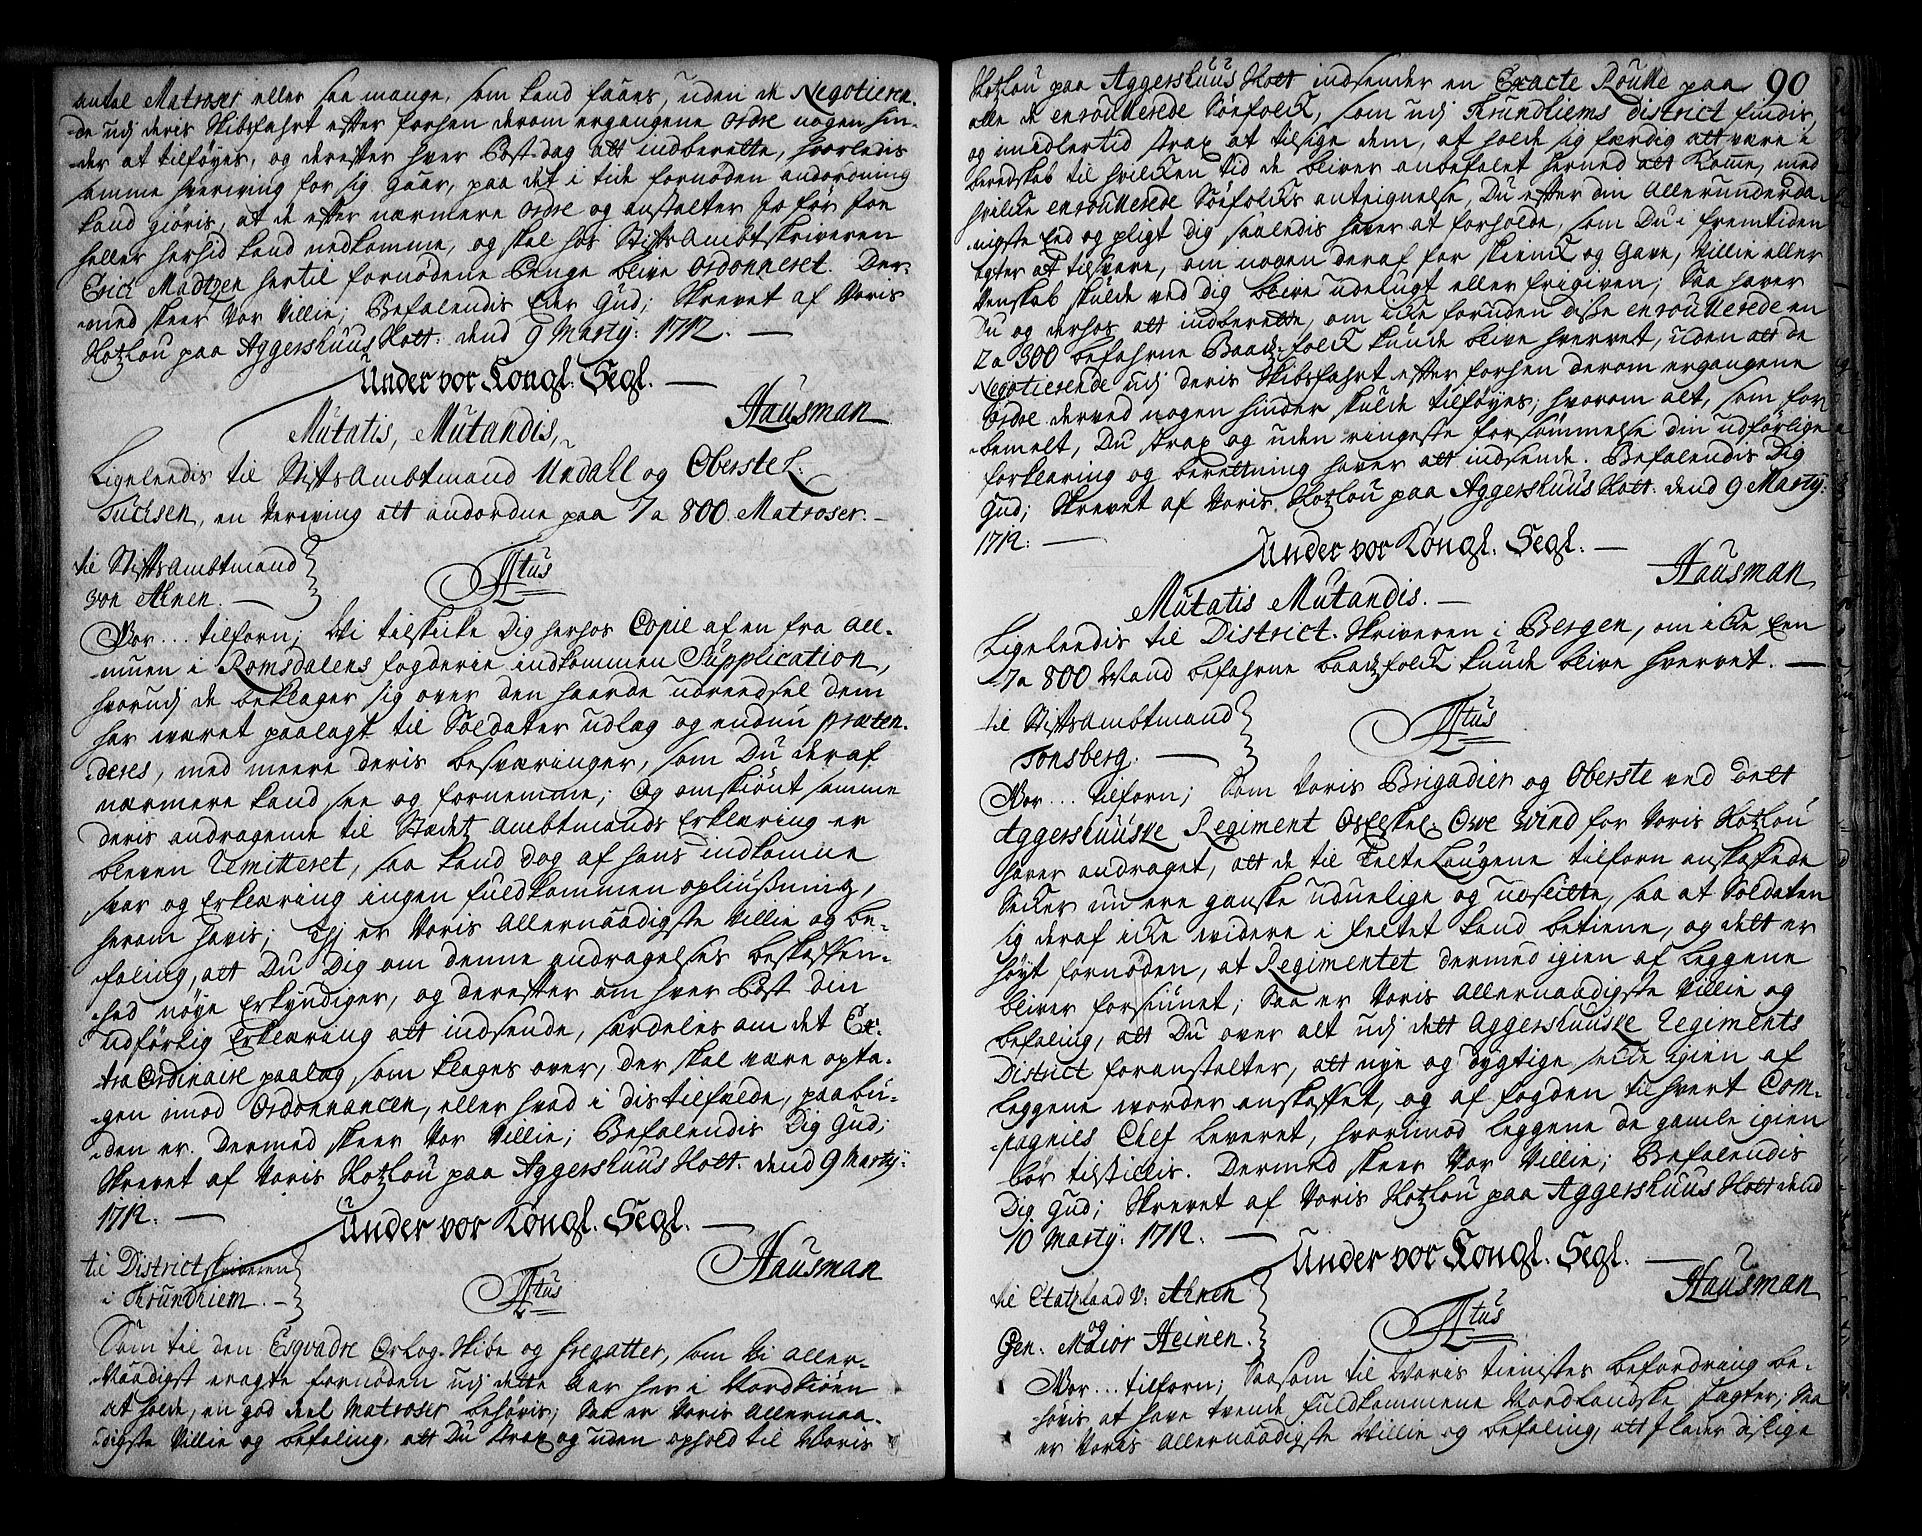 antal Matroser eller saa mange, som kand faaes, uden de Negotieren-
-de udj deris Skibsfahrt efter forhen derom ergangene Ordre nogen hin-
-der at tilføyes, og derefter hver Post-dag att indberette, hvorledis
samme hverfving for sig gaar, paa det i tide fornøden andordning
kand giøris, at de efter nærmere Ordre og anstalter jo før joe
heller herhid kand nedkomme, og skal hos StiftsAmbtskriveren
Erich Madtzen hertil fornødene Penge blive Ordonneret. Der-
-med skeer Vor Villie; Befalendis Eder Gud; Skrevet af Voris
Slotzlou paa Aggershuus Slott. dend 9 Martij: 1712. —
Under vor Kongl. Segl. —
Hausman
Mutatis, Mutandis,
Ligeleedis til StiftsAmbtmand Undall og Oberste L:
Suchsen, en Verfving att andordne paa 7 a 800 Matroser. —
til StiftsAmbtmand
von Ahnen. —
Atus
Vor... tilforn; Wi tilskicke Dig herhos Copie af en fra All-
-muen i Romsdalens fogderie indkommen Supplication,
hvorudj de beklager sig over den haarde udreedsel dem
har wæret paalagt til Soldater udlag og endnu præten-
-deres, med meere deris besværinger, som Du deraf
nærmere kand see og fornemme; Og omskiönt samme
deris andragende til Stædetz Ambtmands Erklæring er
bleven remitteret, saa kand dog af hans indkomne
svar og Erklæring ingen fuldkommen opliußning,
herom havis; Thj er Voris Allernaadigste Villie og be-
-faling, att Du Dig om denne andragelses beskaffen-
-hed nøye Erkyndiger, og derefter om hver Post din
udførlig Erklæring att indsende, særdeles om det Ex-
-tra Ordinaire paalag, som klages over, der skal være opta-
-gen imod Ordonnancen, eller hvad i dis tilfælde, paabu-
-den er. Dermed skeer Vor Villie; Befalendis Dig Gud;
Skrevet af Voris Slotzlou paa Aggershuus Slott. dend 9 Martij:
1712. —
Under vor Kongl. Segl. —
Hausman
til District skriveren
i Trundhiem. —
Atus
Som til den Esqvadre Orlog-Skibe og fregatter, som Vi aller-
-naadigst eragte fornøden udj dette Aar her i Nordsiöen
at holde, en god deel Matroser behøvis; Saa er Voris Allernaa-
-digste Villie og befaling, att Du strax og uden ophold til Woris
90
Slotzlou paa Aggershuus Slott indsender en Exacte Roulle paa
alle de enroullerede Söefolck, som udj Trundhiems District findis,
og imidlertid strax at tilsige dem, at holde sig færdig att være i
beredskab til hvilcken tid de bliver anbefalet herned att komme, med
hvilcke enroullerede Söefolcks antegnelse, Du efter din Allerunderda-
-nigste Eed og pligt Dig saaledis haver at forholde, som Du i fremtiden
agter at tilsvare, om nogen deraf for skienck og Gave, Villie eller
Venskab skulde ved Dig bleve udelugt eller frigiven; Saa haver
Du og derhos att indberette, om icke foruden disse enroullerede en
2 a 300 befahrne Baadtzfolck kunde blive hvervet, uden att de
Negotierende udj deris Skibsfahrt efter forhen derom ergangene
Ordre derved nogen hinder skulde tilføyes; hvorom alt, som for-
-bemelt, Du strax og uden ringeste forsömmelse din udførlige
forklaring og berettning haver att indsende. Befalendis Dig
Gud; Skrevet af Voris Slotzlou paa Aggershuus Slott. dend 9 Martij:
1712. —
Under vor Kongl. Segl. —
Hausman
Mutatis Mutandis. —
Ligeleedis til District-Skriveren i Bergen, om icke Een
7 a 800 Mand befahrne baadtzfolck kunde blive hvervet. —
til StiftsAmbtmand
Tonsberg. —
Atus
Vor... tilforn; Som Voris Brigadier og Oberste ved Dett
Aggershuuske Regiment Os Elskel. Owe Wind for Voris Slotzlou
haver andraget, att de til Telte Laugene tilforn anskaffede
Secker nu ere ganske uduelige og udslitte, saa at Soldaten
sig deraf icke widere i feltet kand betiene, og dett er
høyt fornøden, at Regimentet dermed igien af Leggene
bliver forsiunet; Saa er Voris Allernaadigste Villie og
befaling, att Du over alt udj dett Aggershuuske Regiments
District foranstalter, att nye og dygtige igien af
Leggene worder anskaffet, og af fogden til hvert Com-
-pagnies Chef leveret, hvorimod Leggene de gamle igien
bør tilstillis. Dermed skeer Vor Villie; Befalendis
Dig Gud; Skrevet af Voris Slotzlou paa Aggershuus Slott dend
10 Martij: 1712. —
Under vor Kongl. Segl. —
Hausman
til Etatzraad v: Ahnen
og
Gen: Maior Heinen.
Atus
Vor... tilforn; Saasom til Woris tienistes befordring be-
-høvis at have tvende fuldkommene Nordlandske Jagter; Saa
er Voris Allernaadigste Willie og befaling, att I lader dislige